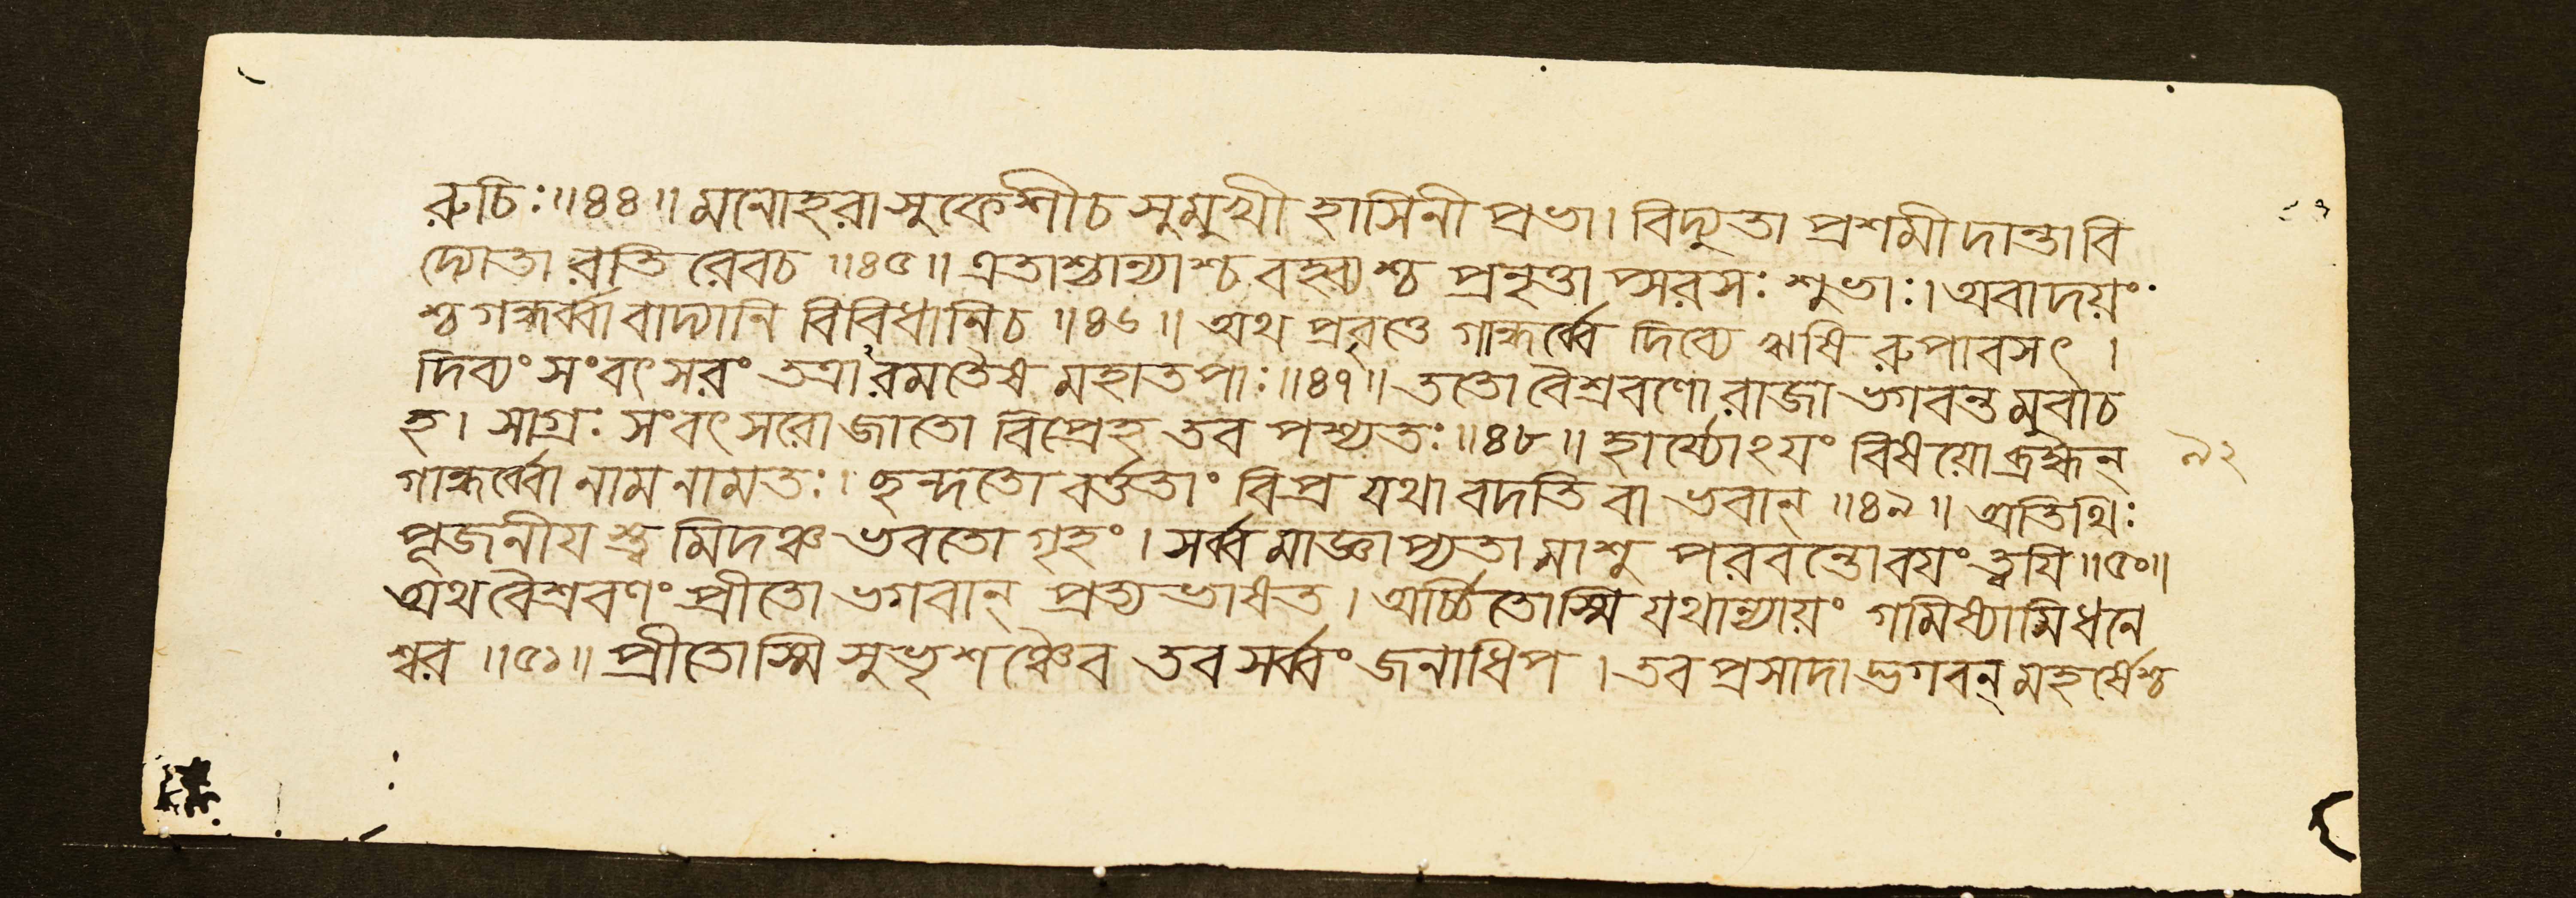 রুচিঃ॥৪৪॥ মনোহরা সুকেশীচ সুমুখী হাসিনী প্রভা। বিদ্যুতা প্রশমী দান্তা বি
দ্যোতা রতি রেবচ ॥৪৫॥ এতাশ্চান্যাশ্চ বহ্ব্যশ্চ প্রনৃত্তাপ্সরসঃ শুভাঃ। অবাদয়ং
শ্চ গন্ধর্ব্বা বাদ্যানি বিবিধানিচ ॥৪৬॥ অথ প্রবৃত্তে গান্ধর্ব্বে দিব্যে ঋষি রুপাবসৎ ।
দিব্যং সংবৎসরং তত্রারমতৈষ মহাতপাঃ॥৪৭॥ ততো বৈশ্রবণো রাজা ভগবন্ত মুবাচ
হ। সাগ্রঃ সংবৎসরো জাতো বিপ্রেহ তব পশ্যতঃ॥৪৮॥ হার্য্যোঽয়ং বিষয়ো ব্রহ্মন্ ৯২
গান্ধর্ব্বো নাম নামতঃ। ছন্দতো বর্ত্ততাং বিপ্র যথা বদতি বা ভবান্ ॥৪৯॥ অতিথিঃ
পূজনীয় স্ত্ব মিদঞ্চ ভবতো গৃহং। সর্ব্ব মাজ্ঞাপ্যতা মাশু পরবন্তো বয়ং ত্বয়ি ॥৫০॥
অথ বৈশ্রবণং প্রীতো ভগবান্ প্রত্য ভাষত। অর্চ্চিতোস্মি যথান্যায়ং গমিষ্যামি ধনে
শ্বর ॥৫১॥ প্রীতোস্মি সুভৃশঞ্চৈব তব সর্ব্বং জনাধিপ । তব প্রসাদা দ্ভগবন্ মহর্ষেশ্চ